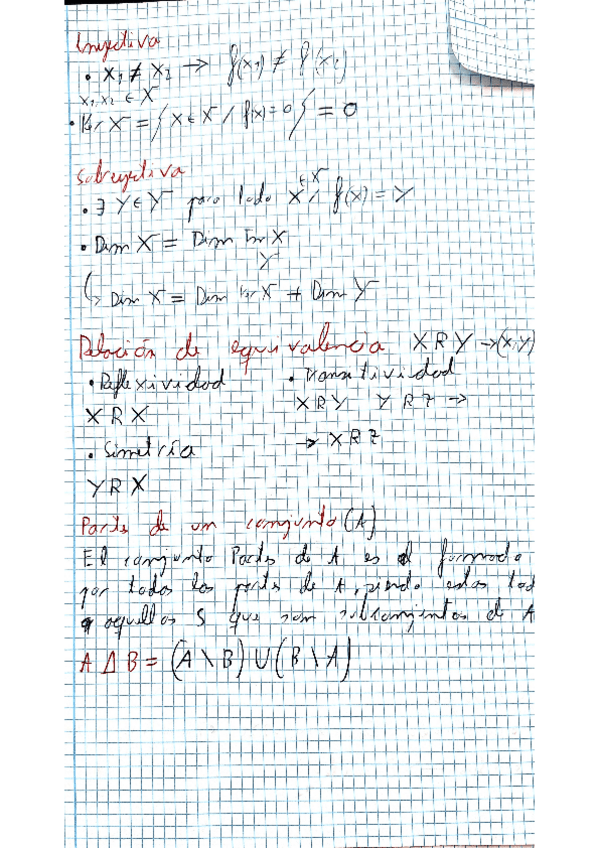 Inyectiva
• X₁ ≠ X₂ → f(x₁) ≠ f(x₂)
x₁, x₂ ∈ X
• Ker X = { x ∈ X / f(x) = 0 } = 0
Sobreyectiva
• ∃ Y ∈ Y para todo x ∈ X / f(x) = Y
• Dim X = Dim Im X
Y
↳ Dim X = Dim Ker X + Dim Y
Relación de equivalencia X R Y → (x, y)
• Reflexividad • transitividad
X R X X R Y Y R Z →
• Simetría → X R Z
Y R X
Partes de un conjunto (A)
El conjunto Partes de A es el formado
por todas las partes de A, siendo estas tod
aquellos S que son subconjuntos de A
A Δ B = (A \ B) U (B \ A)